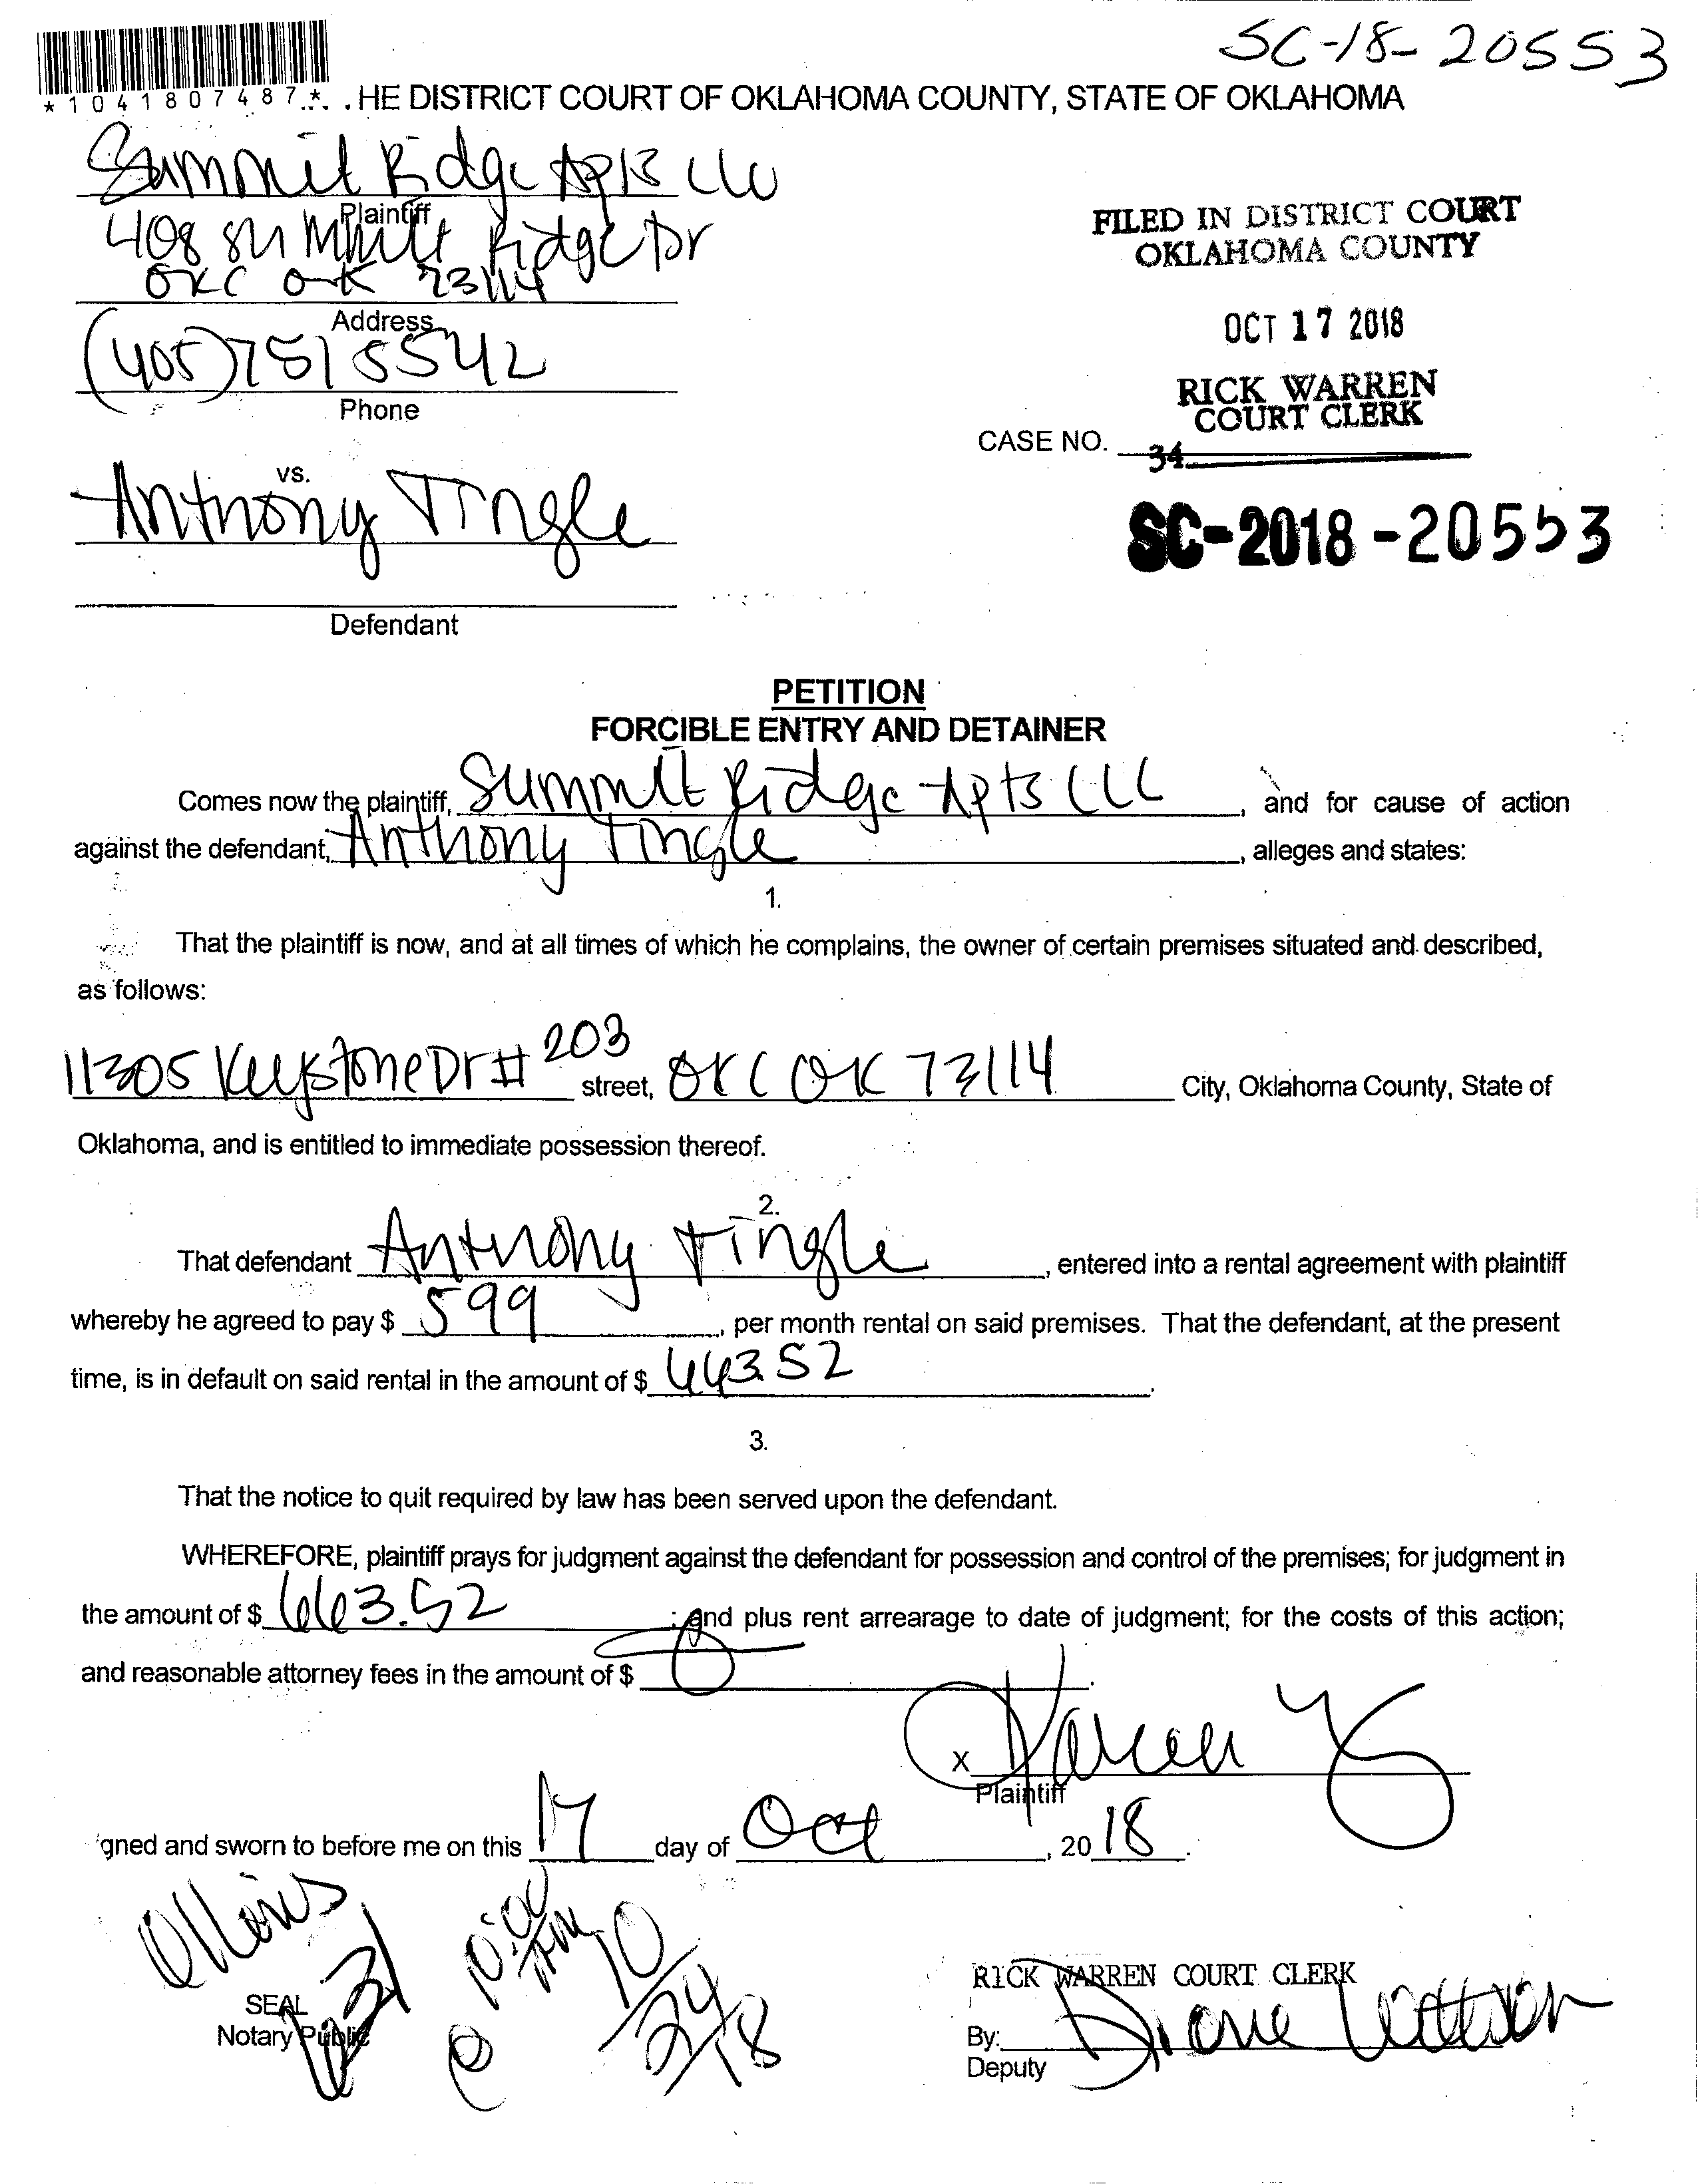 SC-18-20553
*1041807487*. .HE DISTRICT COURT OF OKLAHOMA COUNTY, STATE OF OKLAHOMA
Summit Ridge Apts LLC
Plaintiff
408 Summit Ridge Dr
OKC OK 73114
Address
(405) 751 5542
Phone
FILED IN DISTRICT COURT
OKLAHOMA COUNTY
OCT 17 2018
RICK WARREN
COURT CLERK
CASE NO.
34
vs.
Anthony Tingle
SC-2018-20553
Defendant
PETITION
FORCIBLE ENTRY AND DETAINER
Comes now the plaintiff, Summit Ridge Apts LLC, and for cause of action
against the defendant, Anthony Tingle, alleges and states:
1.
That the plaintiff is now, and at all times of which he complains, the owner of certain premises situated and described,
as follows:
11305 Keystone Dr # 203 street, OKC OK 73114 City, Oklahoma County, State of
Oklahoma, and is entitled to immediate possession thereof.
2.
That defendant Anthony Tingle, entered into a rental agreement with plaintiff
whereby he agreed to pay $ 599, per month rental on said premises. That the defendant, at the present
time, is in default on said rental in the amount of $ 663.52.
3.
That the notice to quit required by law has been served upon the defendant.
WHEREFORE, plaintiff prays for judgment against the defendant for possession and control of the premises; for judgment in
the amount of $ 663.52; and plus rent arrearage to date of judgment; for the costs of this action;
and reasonable attorney fees in the amount of $
X Karen
Plaintiff
'gned and sworn to before me on this 17 day of Oct, 2018.
10/24/18
SEAL
Notary Public
RICK WARREN COURT CLERK
By: Diane
Deputy